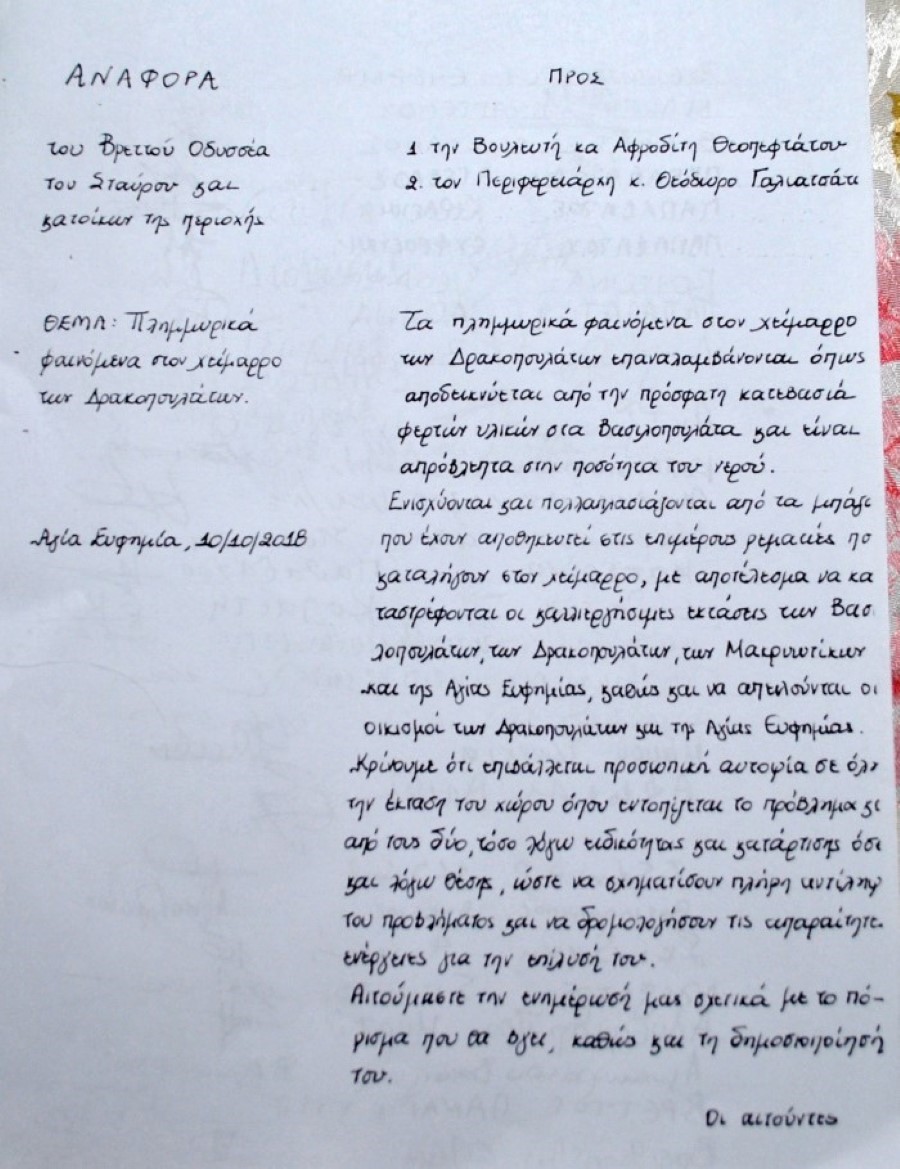 ΑΝΑΦΟΡΑ
του Βρεττού Οδυσσέα
του Σταύρου και
κατοίκων της περιοχής
ΘΕΜΑ: Πλημμυρικά
φαινόμενα στον χείμαρρο
των Δρακοπουλάτων.
Αγία Ευφημία, 10/10/2018
ΠΡΟΣ
1 την Βουλευτή κα Αφροδίτη Θεοπεφτάτου
2. τον Περιφερειάρχη κ. Θεόδωρο Γαλιατσάτ
Τα πλημμυρικά φαινόμενα στον χείμαρρο
των Δρακοπουλάτων επαναλαμβάνονται όπως
αποδεικνύεται από την πρόσφατη κατεβασιά
φερτών υλικών στα Βασιλοπουλάτα και είναι
απρόβλεπτα στην ποσότητα του νερού.
Ενισχύονται και πολλαπλασιάζονται από τα μπάζ
που έχουν αποθηκευτεί στις επιμέρους ρεματιές πο
καταλήγουν στον χείμαρρο, με αποτέλεσμα να κα
ταστρέφονται οι καλλιεργήσιμες εκτάσεις των Βασ
λοπουλάτων, των Δρακοπουλάτων, των Μακρυωτίκων
και της Αγίας Ευφημίας, καθώς και να απειλούνται οι
οικισμοί των Δρακοπουλάτων και της Αγίας Ευφημίας.
Κρίνουμε ότι επιβάλλεται προσωπική αυτοψία σε όλη
την έκταση του χώρου όπου εντοπίζεται το πρόβλημα κ
από τους δύο, τόσο λόγω ειδικότητας και κατάρτισης όσ
και λόγω θέσης, ώστε να σχηματίσουν πλήρη αντίληψ
του προβλήματος και να δρομολογήσουν τις απαραίτητε
ενέργειες για την επίλυσή του.
Αιτούμαστε την ενημέρωσή μας σχετικά με το πό-
ρισμα που θα βγει, καθώς και τη δημοσιοποίησή
του.
Οι αιτούντες